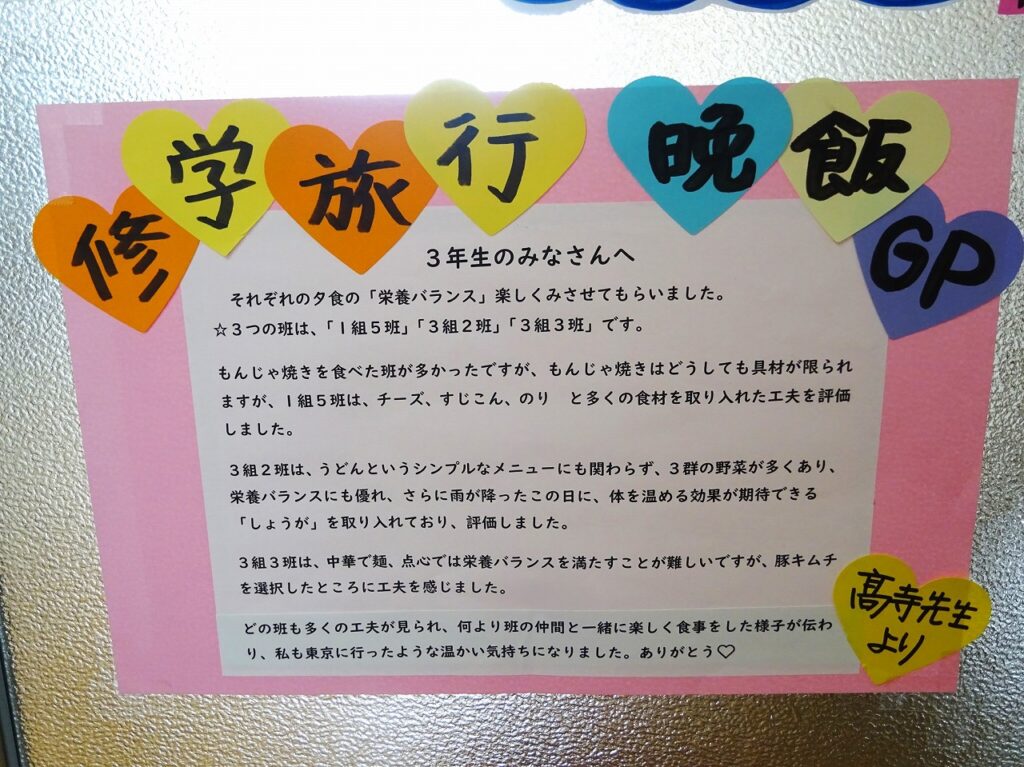 修学旅行 晩飯GP
３年生のみなさんへ
それぞれの夕食の「栄養バランス」楽しくみさせてもらいました。
☆３つの班は、「１組５班」「３組２班」「３組３班」です。
もんじゃ焼きを食べた班が多かったですが、もんじゃ焼きはどうしても具材が限られ
ますが、１組５班は、チーズ、すじこん、のり　と多くの食材を取り入れた工夫を評価
しました。
３組２班は、うどんというシンプルなメニューにも関わらず、３群の野菜が多くあり、
栄養バランスにも優れ、さらに雨が降ったこの日に、体を温める効果が期待できる
「しょうが」を取り入れており、評価しました。
３組３班は、中華で麺、点心では栄養バランスを満たすことが難しいですが、豚キムチ
を選択したところに工夫を感じました。
どの班も多くの工夫が見られ、何より班の仲間と一緒に楽しく食事をした様子が伝わ
り、私も東京に行ったような温かい気持ちになりました。ありがとう♡
髙寺先生
より